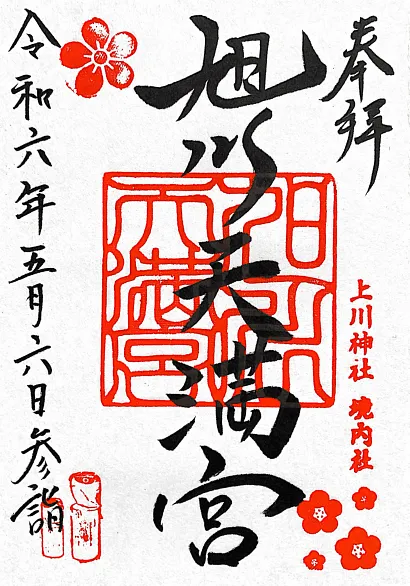 奉拝
上川神社 境内社
旭川天満宮
令和六年五月六日参詣